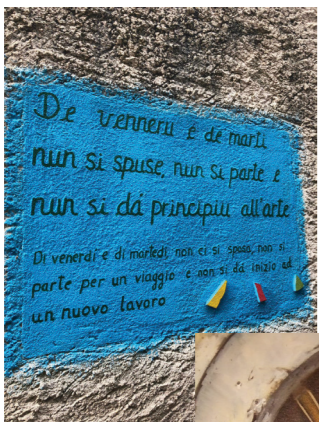 De venneru e de marti
nun si spuse, nun si parte e
nun si dá principiu all'arte
Di venerdì e di martedì, non ci si sposa, non si
parte per un viaggio e non si dà inizio ad
un nuovo lavoro